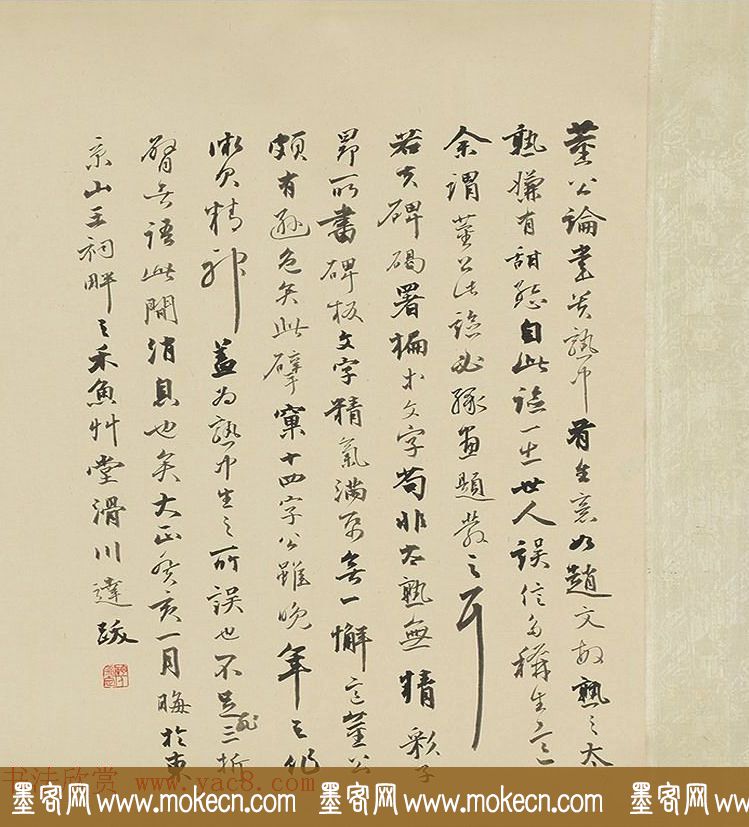 董公論書貴熟中有生意如趙文敏熟之太
熟嫌有甜 自此論一出世人誤信多稱生之一
余謂董公此論必緣畫題發之耳
若夫碑碣署榜大文字苟非太熟無精彩子
昂所書碑板文字精氣滿 無一懈 董公
頗有遜色矣此擘窠十四字公雖晚年之作
少精神蓋為熟中生之所誤也不足三折
無語此間消息也矣大正癸亥一月晦於東
京山王祠畔之禾魚艸堂滑川達跋
书法欣赏 www.yac8.com
墨客网 www.mokecn.com 墨客网 www.mokecn.com 墨客网 www.mokecn.com